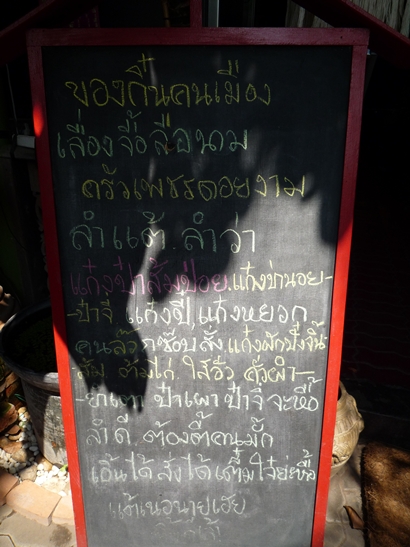 ของกิ๋นคนเมือง
เลื่องจื้อลือนาม
ครัวเพชรดอยงาม
ลำแต้ ลำว่า
แก๋งป๋าส้มป่อย, แก๋งบ่านอย-
-ป๋าจี่ แก๋งปี๋, แก๋งหยวก
คนลัวะ ชอบสั่ง, แก๋งผักปั๋งจิ๊น
ส้ม ต๋ำไก่ ใส้อั่ว คั่วผำ-
ป๋าเผา ป๋าจี่ จะหื้อ
ลำดี ต้องตี้คนมั้ก
เอิ้นได้ สั่งได้
แต้เนอนายเฮย